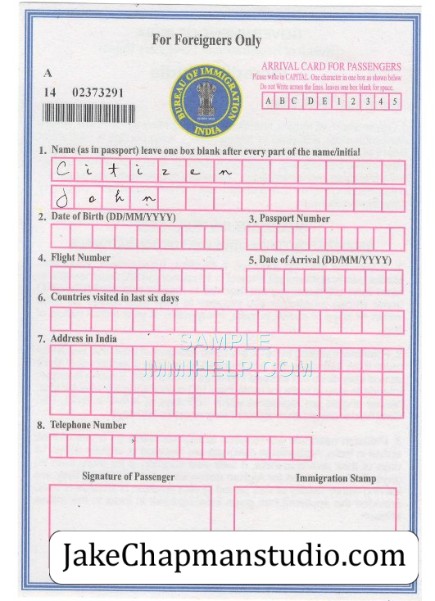 For Foreigners Only
A
14 02373291
BUREAU OF IMMIGRATION
INDIA
ARRIVAL CARD FOR PASSENGERS
Please write in CAPITAL. One character in one box as shown below
Do not Write across the lines. leaves one box blank for space.
A B C D E 1 2 3 4 5
1. Name (as in passport) leave one box blank after every part of the name/initial
Citizen
John
2. Date of Birth (DD/MM/YYYY)
3. Passport Number
4. Flight Number
5. Date of Arrival (DD/MM/YYYY)
6. Countries visited in last six days
7. Address in India
SAMPLE
IMMIHELP.COM
8. Telephone Number
Signature of Passenger
Immigration Stamp
JakeChapmanstudio.com